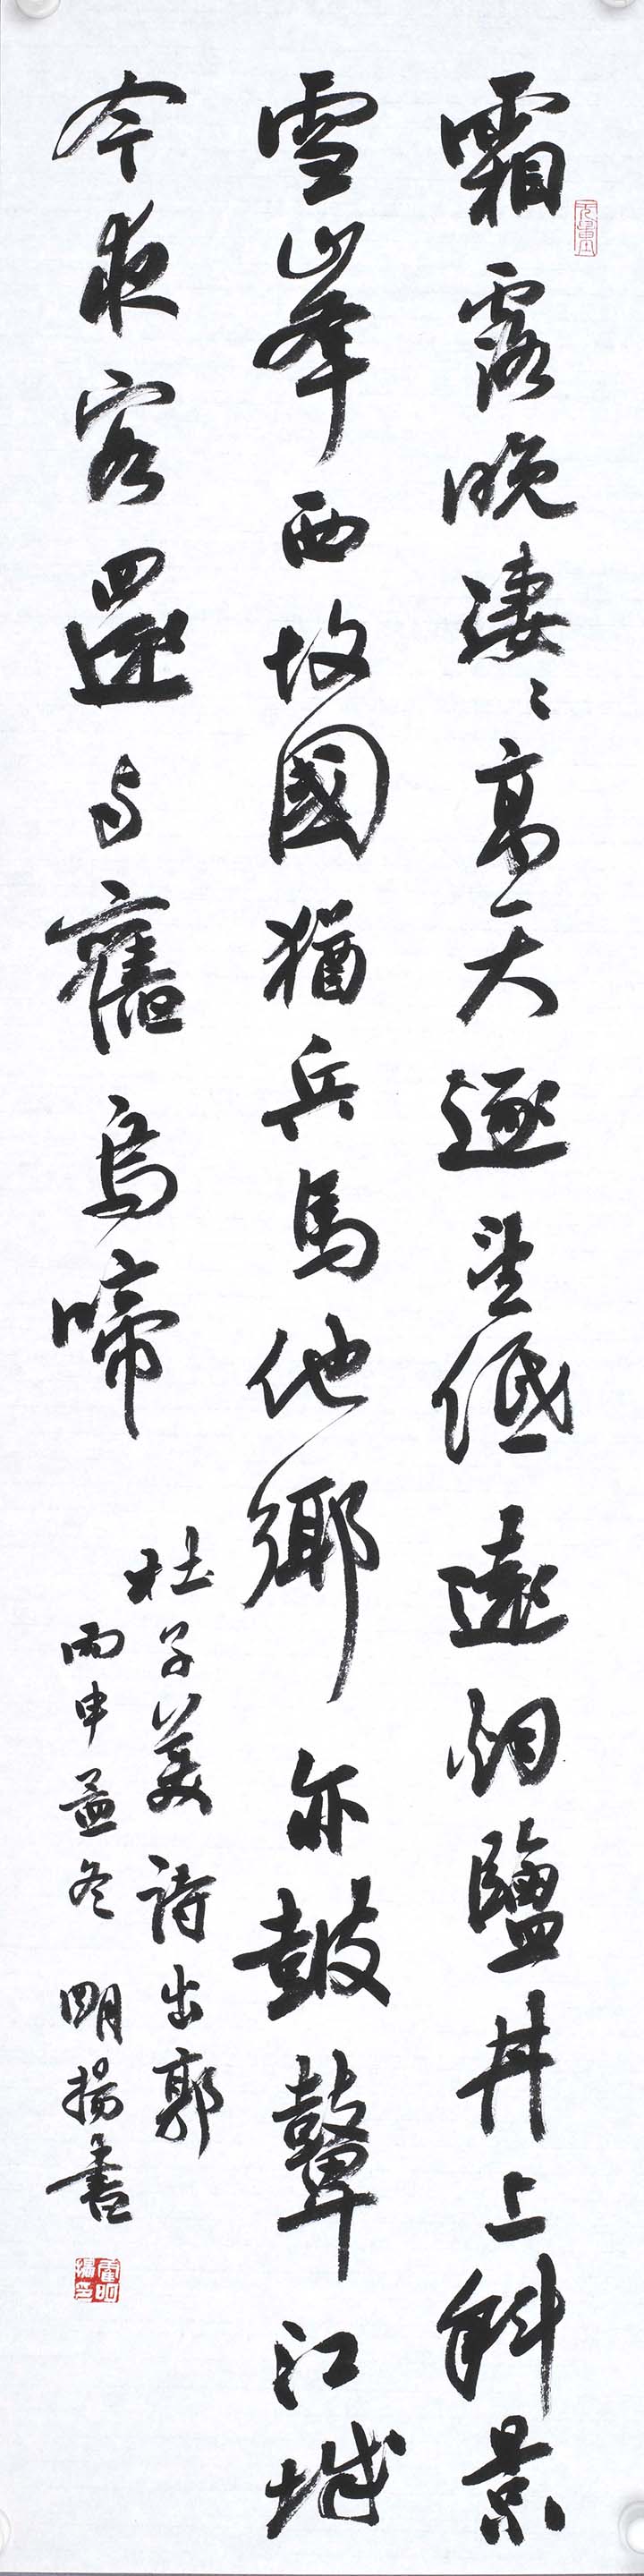 霜露晚凄〻高天逐望低遠烟鹽井上斜景
雪峯西故國猶兵馬他鄉亦鼓鼙江城
今夜客還与舊烏啼
杜子美詩出郭
丙申孟冬 明揚書